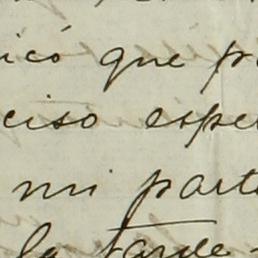 icó que p
ciso espe
mi parte
la tarde